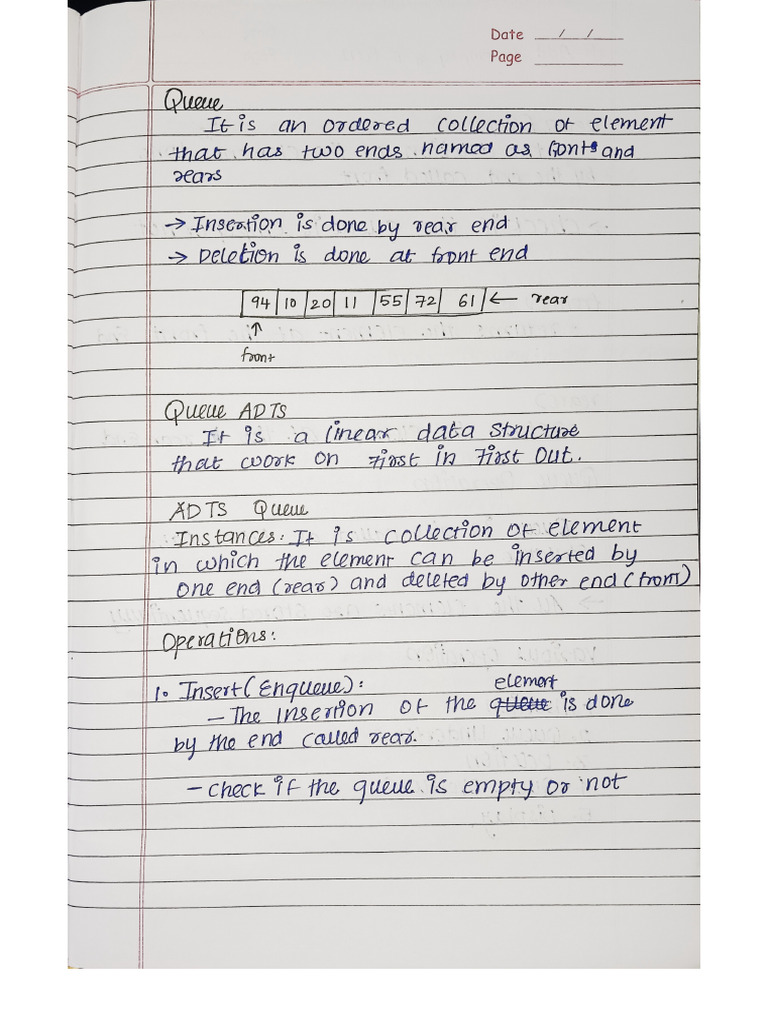 Date __/__/__
Page ______
Queue
It is an ordered collection of element
that has two ends named as fronts and
rears
→ Insertion is done by rear end
→ Deletion is done at front end
94 10 20 11 55 72 61 ← rear
↑
front
Queue ADTS
It is a linear data structure
that work on First in First Out.
ADTS Queue
Instances: It is collection of element
in which the element can be inserted by
one end (rear) and deleted by other end (front)
Operations:
1. Insert (Enqueue):
- The insertion of the queue element is done
by the end called rear.
- check if the queue is empty or not